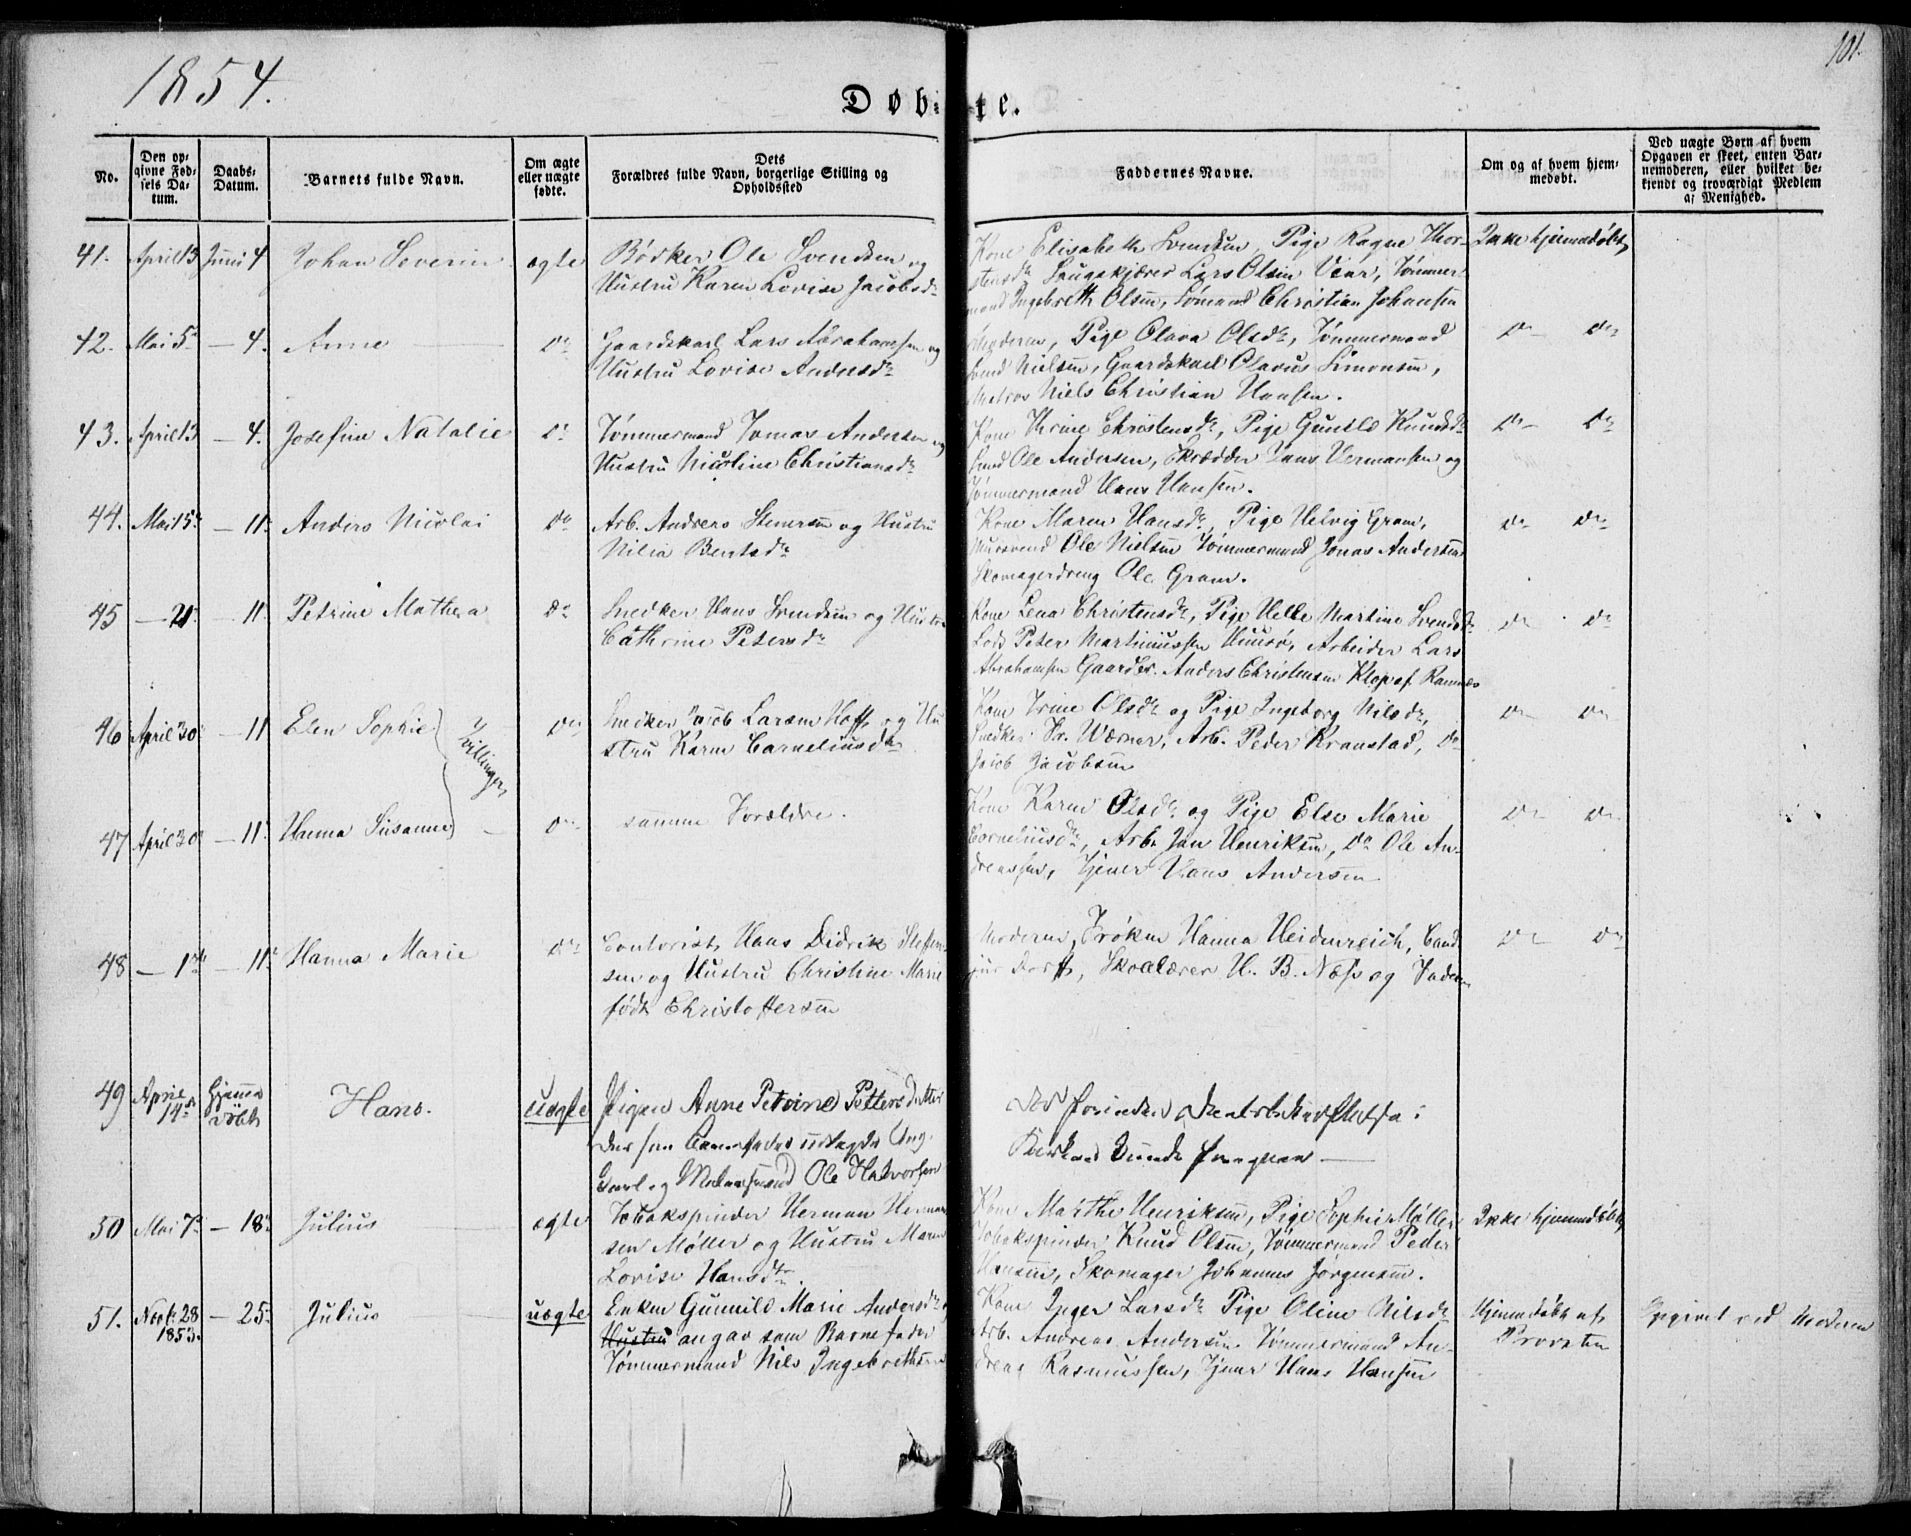 1854.
101.
Døb-te.
No.
Den op-
givne Fød-
sels Da-
tum.
Daabs-
Datum.
Barnets fulde Navn.
Om ægte
eller uægte
fødte.
Dets
Forældres fulde Navn, borgerlige Stilling og
Opholdssted
Faddernes Navne.
Om og af hvem hjem-
medøbt.
Ved uægte Børn af hvem
Opgaven er skeet, enten Bar-
nemoderen, eller hvilket be-
kjendt og troværdigt Medlem
af Menighed.
41. April 13 Juni 4 Johan Severin ægte Bødker Ole Svendsen og
Hustru Karen Lovise Jacobsd.
Kone Elisabeth Svendsen, Pige Ragne Thor-
stensd. Lars Olsen Vear, Tømmer-
mand Ingebreth Olsen, Sømand Christian Johansen
Ikke hjemmedøbt
42. Mai 5 — 4. Anne Do Gaardskarl Lars Abrahamsen og
Hustru Lovise Andersd.
Moderen, Pige Olava Olsd., Tømmermand
Svend Nielsen, Gaardskarl Olavus Simonsen,
Matros Niels Christian Hansen.
Do Do
43. April 13 — 4. Josefine Natalie Do Tømmermand Jonas Andersen og
Hustru Nicoline Christiansd.
Kone Thrine Christensd., Pige Gunild Knudsd.
Smed Ole Andersen, Skrædder Hans Hermansen og
Tømmermand Hans Hansen.
Do Do
44. Mai 15 — 11. Anders Nicolai Do Arb. Andreas Stenersen og Hustru
Nilia Bentsd.
Kone Maren Hansd., Pige Helvig Gram,
Ole Nielsen Tømmermand Jonas Andersen
Skomagerdreng Ole Gram.
Do Do
45 — 21. — 11. Petrine Mathea Do Snedker Hans Svendsen og Hustru
Cathrine Petersd.
Kone Lena Christensd., Pige Helle Martine Svendsd.
Lods Peter Martiniussen Huusø, Arbeider Lars
Abrahamsen Gaardbr. Anders Christensen Klop af Ramnæs
Do Do
46 April 30 — 11 Elen Sophie Tvillinger Do Snedker Jacob Larsen Hoff og Hu-
stru Karen Corneliusd.
Kone Trine Olsd. og Pige Ingeborg Nilsd.,
Snedker Fr. Werner, Arb. Peder Kranstad, Do
Jacob Jacobsen
Do Do
47 April 30 — 11. Hanna Susanne Do samme Forældre.
Kone Karen Olsd. og Pige Else Marie
Corneliusd., Arb. Jan Henriksen, Do Ole An-
dreassen, Tjener Hans Andersen
Do Do
48 — 1 — 11. Hanna Marie Do Contorist Hans Didrik Steffen-
sen og Hustru Christine Marie
født Christoffersen
Moderen, Frøken Hanna Heidenreich, Cand.
jur Skolelærer H. B. Næss og Faderen
Do Do
49 April
14 Hjemme
døbt Hans. uægte Pigen Anne Petrine Pettersdatter
der som Barnefader udlagde Ung-
karl og Ole Halvorsen
50 Mai 7 — 18. Julius ægte Tobakspinder Herman Herman-
sen Møller og Hustru Maren
Lovise Hansdtr.
Kone Marthe Henriksen, Pige Sophie Møller
Tobakspinder Knud Olsen, Tømmermand Peder
Hansen, Skomager Johannes Jørgensen.
Ikke hjemmedøbt
51. Novbr. 28
1853. — 25. Julius uægte Enken Gunnild Marie Andersd.
Hustru angav som Barnefader
Tømmermand Nils Ingebrethsen
Kone Inger Larsd. Pige Oline Nilsd.
Arb. Andreas Andersen Tømmermand An-
dreas Rasmussen, Tjener Hans Hansen
Hjemmedøbt af
Provsten
Opgivet ved Moderen